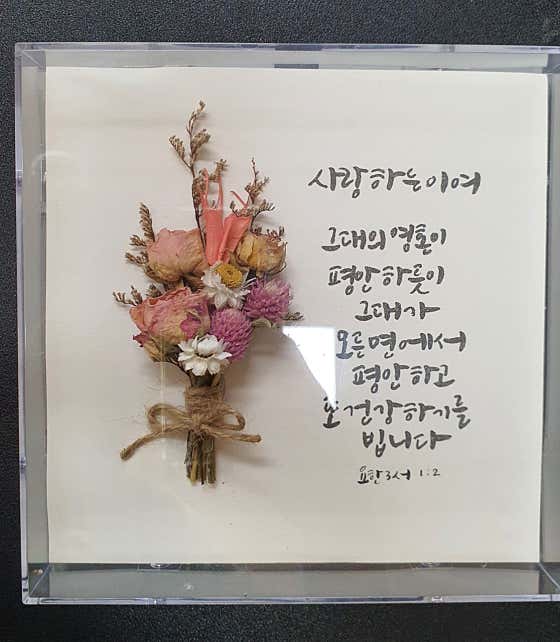 사랑하는이여
그대의 영혼이
평안하듯이
그대가
모든면에서
평안하고
또 건강하기를
빕니다
요한3서 1:2